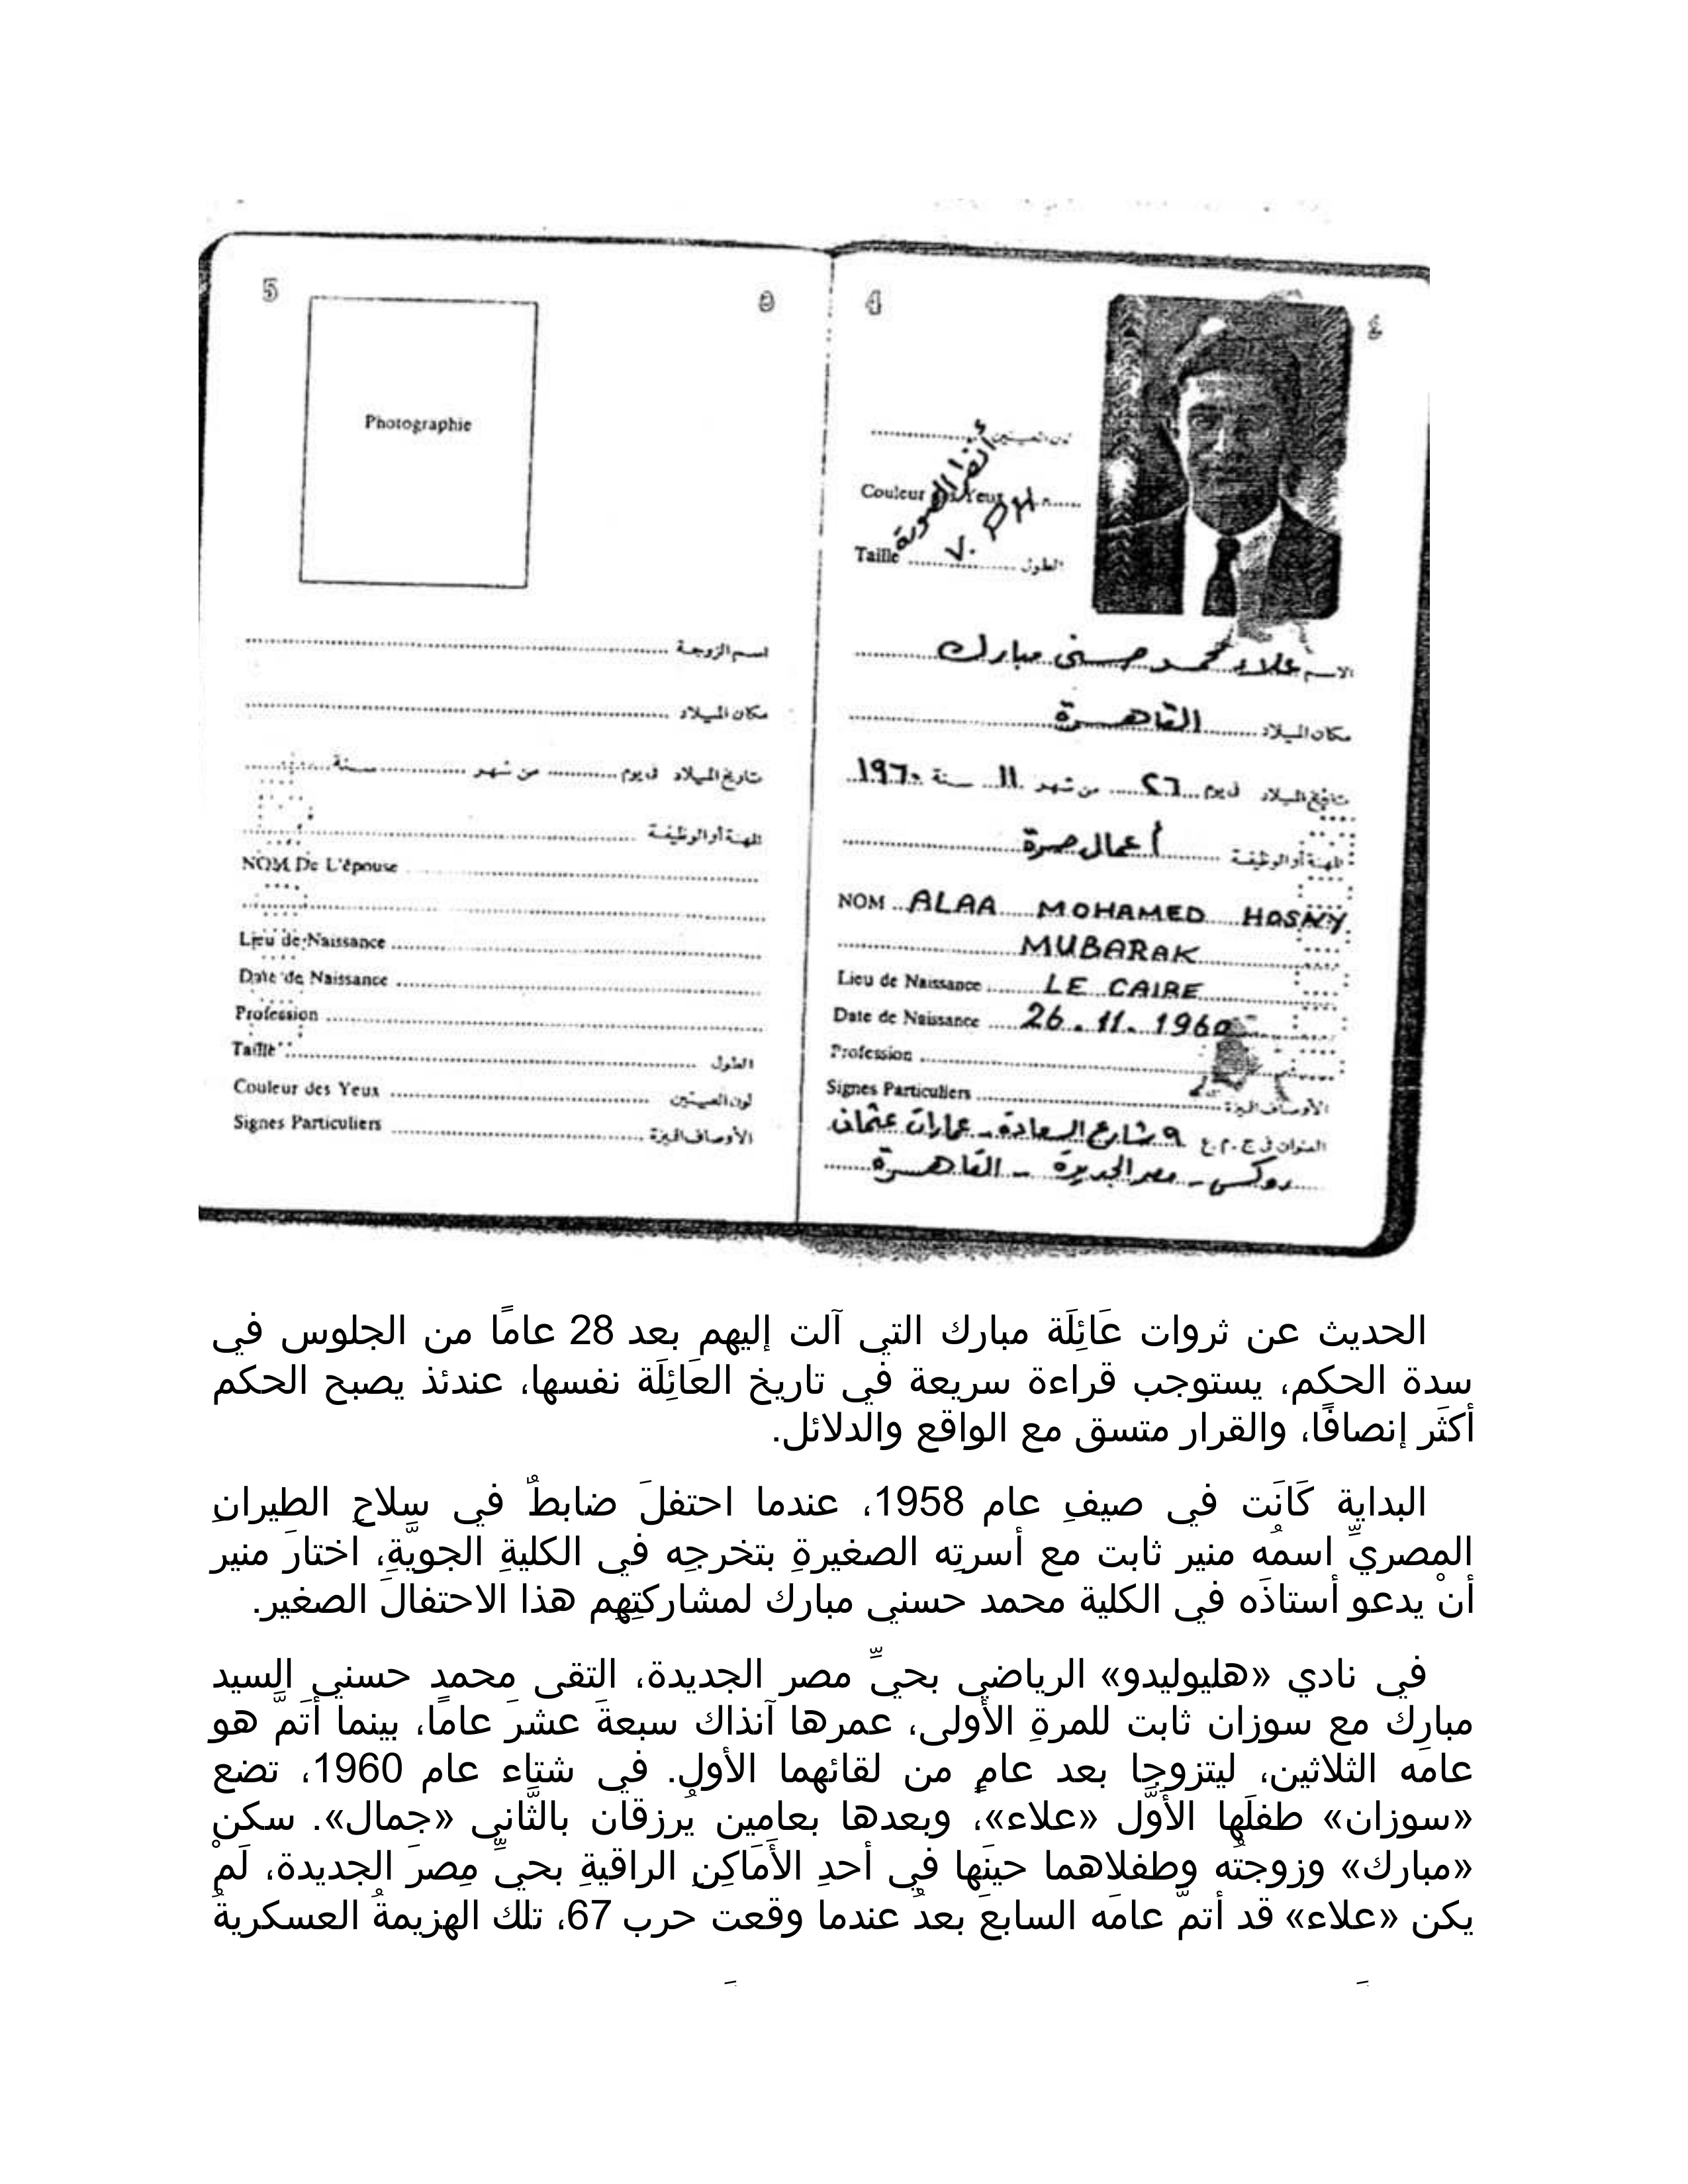 5
٥
Photographie
اسم الزوجة
مكان الميلاد
تاريخ الميلاد في يوم من شهر سنة
المهنة أو الوظيفة
NOM De L'épouse
Lieu de Naissance
Date de Naissance
Profession
Taille الطول
Couleur des Yeux لون العينين
Signes Particuliers الأوصاف المميزة
4
٤
لون العينين
Couleur des Yeux
أنظر الصورة
Taille الطول
الاسم علاء محمد حسنى مبارك
مكان الميلاد القاهرة
تاريخ الميلاد في يوم ٢٦ من شهر ١١ سنة ١٩٦٠
المهنة أو الوظيفة أعمال حرة
NOM ALAA MOHAMED HOSNY
MUBARAK
Lieu de Naissance LE CAIRE
Date de Naissance 26.11.1960
Profession
Signes Particuliers الأوصاف المميزة
العنوان في ج.م.ع ٩ شارع السعادة - عمارات عثمان
روكسى - مصر الجديدة - القاهرة
الحديث عن ثروات عَائِلَة مبارك التي آلت إليهم بعد 28 عامًا من الجلوس في
سدة الحكم، يستوجب قراءة سريعة في تاريخ العَائِلَة نفسها، عندئذ يصبح الحكم
أكثَر إنصافًا، والقرار متسق مع الواقع والدلائل.
البداية كَانَت في صيفِ عام 1958، عندما احتفلَ ضابطٌ في سِلاحِ الطيرانِ
المصريِّ اسمُه منير ثابت مع أسرتِه الصغيرةِ بتخرجِه في الكليةِ الجويَّةِ، اختارَ منير
أنْ يدعو أستاذَه في الكلية محمد حسني مبارك لمشاركتِهِم هذا الاحتفالَ الصغير.
في نادي «هليوليدو» الرياضي بحيِّ مصر الجديدة، التقى محمد حسني السيد
مبارك مع سوزان ثابت للمرةِ الأولى، عمرها آنذاك سبعةَ عشرَ عامًا، بينما أتَمَّ هو
عامَه الثلاثين، ليتزوجا بعد عامٍ من لقائهما الأولِ. في شتاء عام 1960، تضع
«سوزان» طفلَها الأَوَّل «علاء»، وبعدها بعامين يُرزقان بالثَّاني «جمال». سكن
«مبارك» وزوجتُه وطفلاهما حينَها في أحدِ الأَمَاكِنِ الراقيةِ بحيِّ مِصرَ الجديدة، لَمْ
يكن «علاء» قد أتمَّ عامَه السابعَ بعدُ عندما وقعت حرب 67، تلك الهزيمةُ العسكريةُ